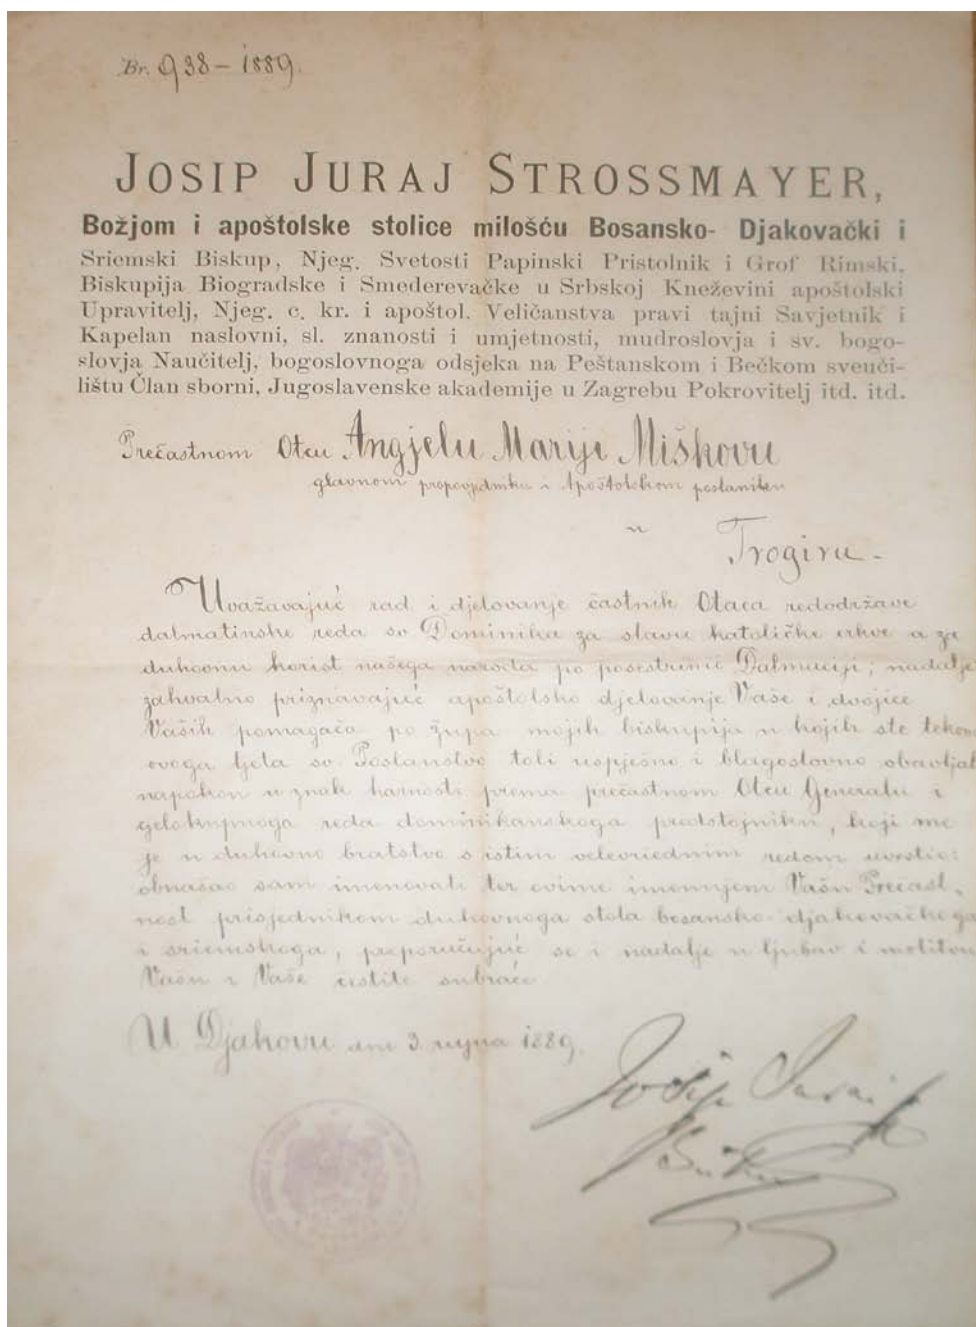 Br. 938 – 1889.
JOSIP JURAJ STROSSMAYER,
Božjom i apoštolske stolice milošću Bosansko- Djakovački i
Sriemski Biskup, Njeg. Svetosti Papinski Pristolnik i Grof Rimski,
Biskupija Biogradske i Smederevačke u Srbskoj Kneževini apoštolski
Upravitelj, Njeg. c. kr. i apoštol. Veličanstva pravi tajni Savjetnik i
Kapelan naslovni, sl. znanosti i umjetnosti, mudroslovja i sv. bogo-
slovja Naučitelj, bogoslovnoga odsjeka na Peštanskom i Bečkom sveuči-
lištu Član sborni, Jugoslavenske akademije u Zagrebu Pokrovitelj itd. itd.
Prečastnom Otcu Angjelu Mariji Miškovu
glavnom propovjedniku i Apoštolskom poslaniku
u
Trogiru –
Uvažavajuć rad i djelovanje častnih Otaca redodržave
dalmatinske reda sv Dominika za slavu katoličke crkve a za
duhovnu korist našega naroda po posestrimi Dalmaciji; nadalje
zahvalno priznavajuć apoštolsko djelovanje Vaše i dvojice
Vaših pomagača po župa mojih biskupija u kojih ste tekom
ovoga ljeta sv. Poslanstvo toli uspješno i blagoslovno obavljali
napokon u znak harnosti prema prečastnom Otcu Generalu i
reda dominikanskoga predstojniku, koji me
je u duhovno bratstvo s istim velevriednim redom uvrstio:
obnašao sam imenovati ter ovime imenujem Vašu Prečast-
nost prisjednikom duhovnoga stola bosansko-djakovačkoga
i sriemskoga, preporučujuć se i nadalje u ljubav i molitvu
Vašu i Vaše čestite subraće
U Djakovu dne 3. rujna 1889.
Josip Juraj